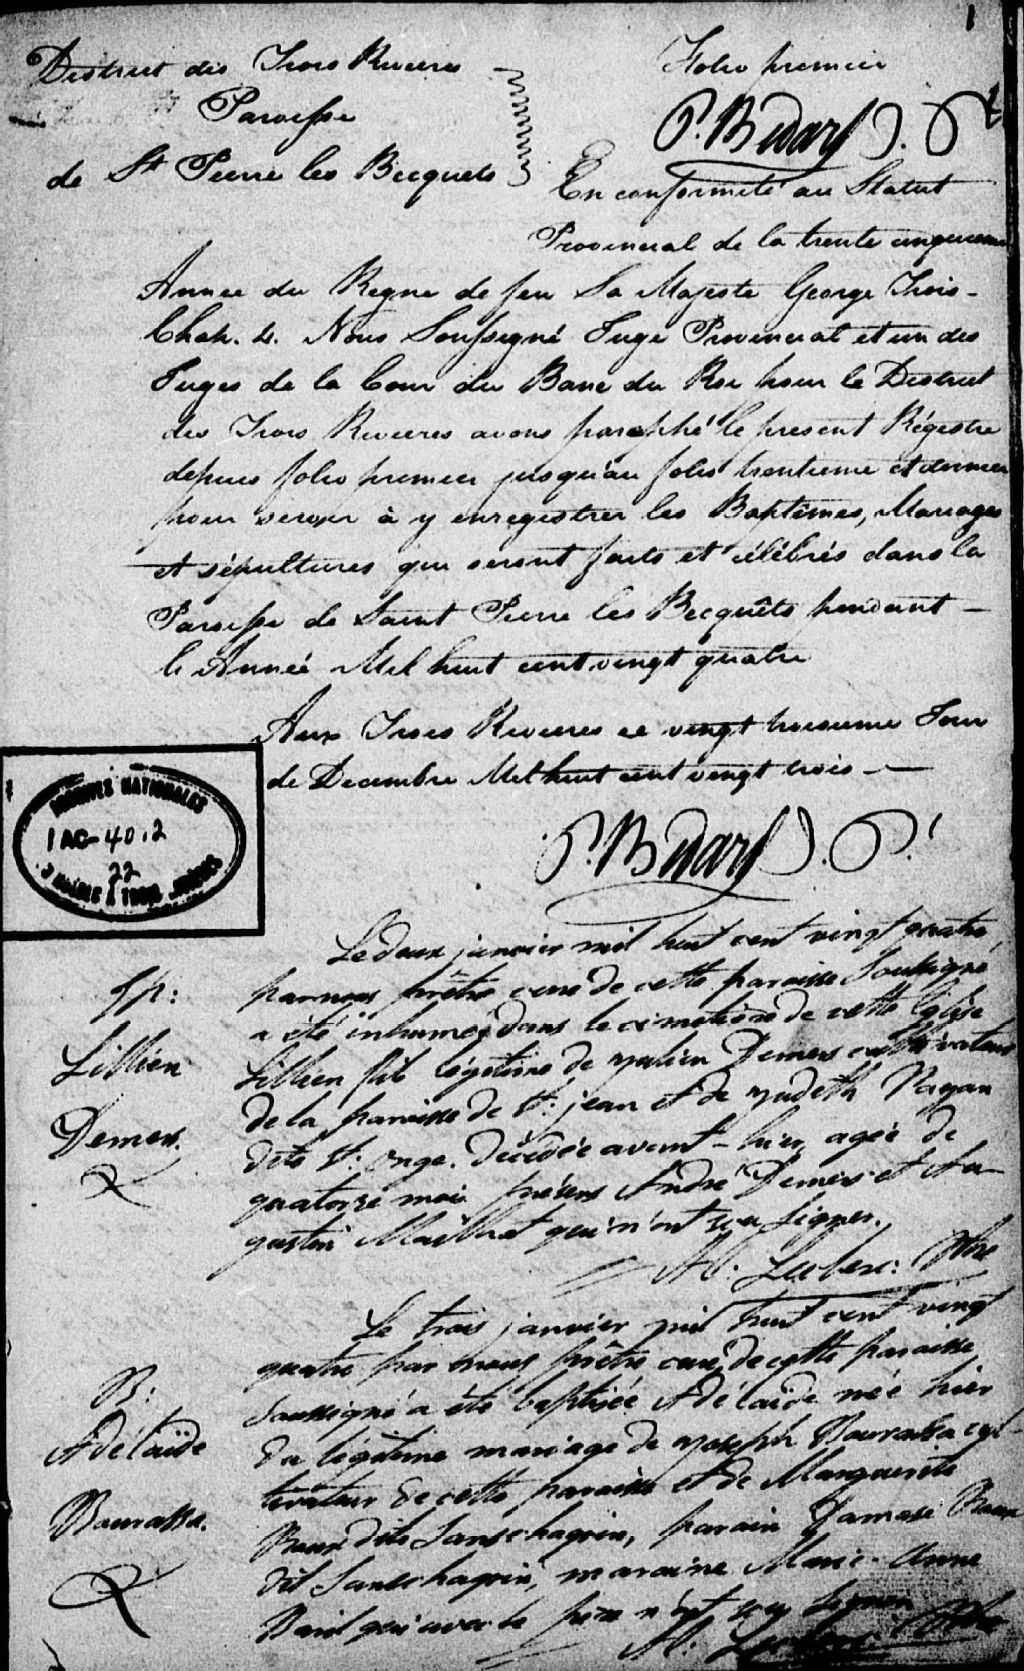 1
District des Trois Rivieres
Paroisse
de St Pierre les Becquets
Folio premier
P. Bedard J. P
En conformité au Statut
Provincial de la trente cinquieme
Annee du Regne de feu Sa Majeste George Trois -
Chap. 4. Nous Soussigné Juge Provincial et un des
Juges de la Cour du Banc du Roi pour le District
des Trois Rivieres avons paraphé le present Régistre
depuis folio premier jusqu'au folio trentieme et dernier
pour servir à y enregistrer les Baptêmes, Mariages
et sépultures qui seront faits et célébrés dans la
Paroisse de Saint Pierre les Becquêts pendant -
l'Année Mil huit cent vingt quatre
Aux Trois Rivieres ce vingt troisieme Jour
de Decembre Mil huit cent vingt trois -
P. Bedard J. P.
ARCHIVES NATIONALES
1 AC-40.2
22
Le deux janvier mil huit cent vingt quatre,
par nous prêtre curé de cette paroisse Soussigné
a été inhumé dans le cimetière de cette église
fils légitime de Demers cultivateur
de la paroisse de St: jean et de
dite St: onge. décédée avant-hier, agée de
quatorze mois présens André Demers et Au-
gustin Mailhot qui n'ont sçu signer.
Leclerc: Ptre
Sp:
Demers.
Le trois janvier mil huit cent vingt
quatre par nous prêtre curé de cette paroisse
soussigné a été baptisée Adélaïde née hier
du légitime mariage de joseph Bourassa cul-
tivateur de cette paroisse et de Marguerite
dite Sanschagrin, parain Damase
dit Sanschagrin, maraine Marie-Anne
qui avec le père n'ont sçu signer
Leclerc Ptre
B:
Adélaïde
Bourassa.